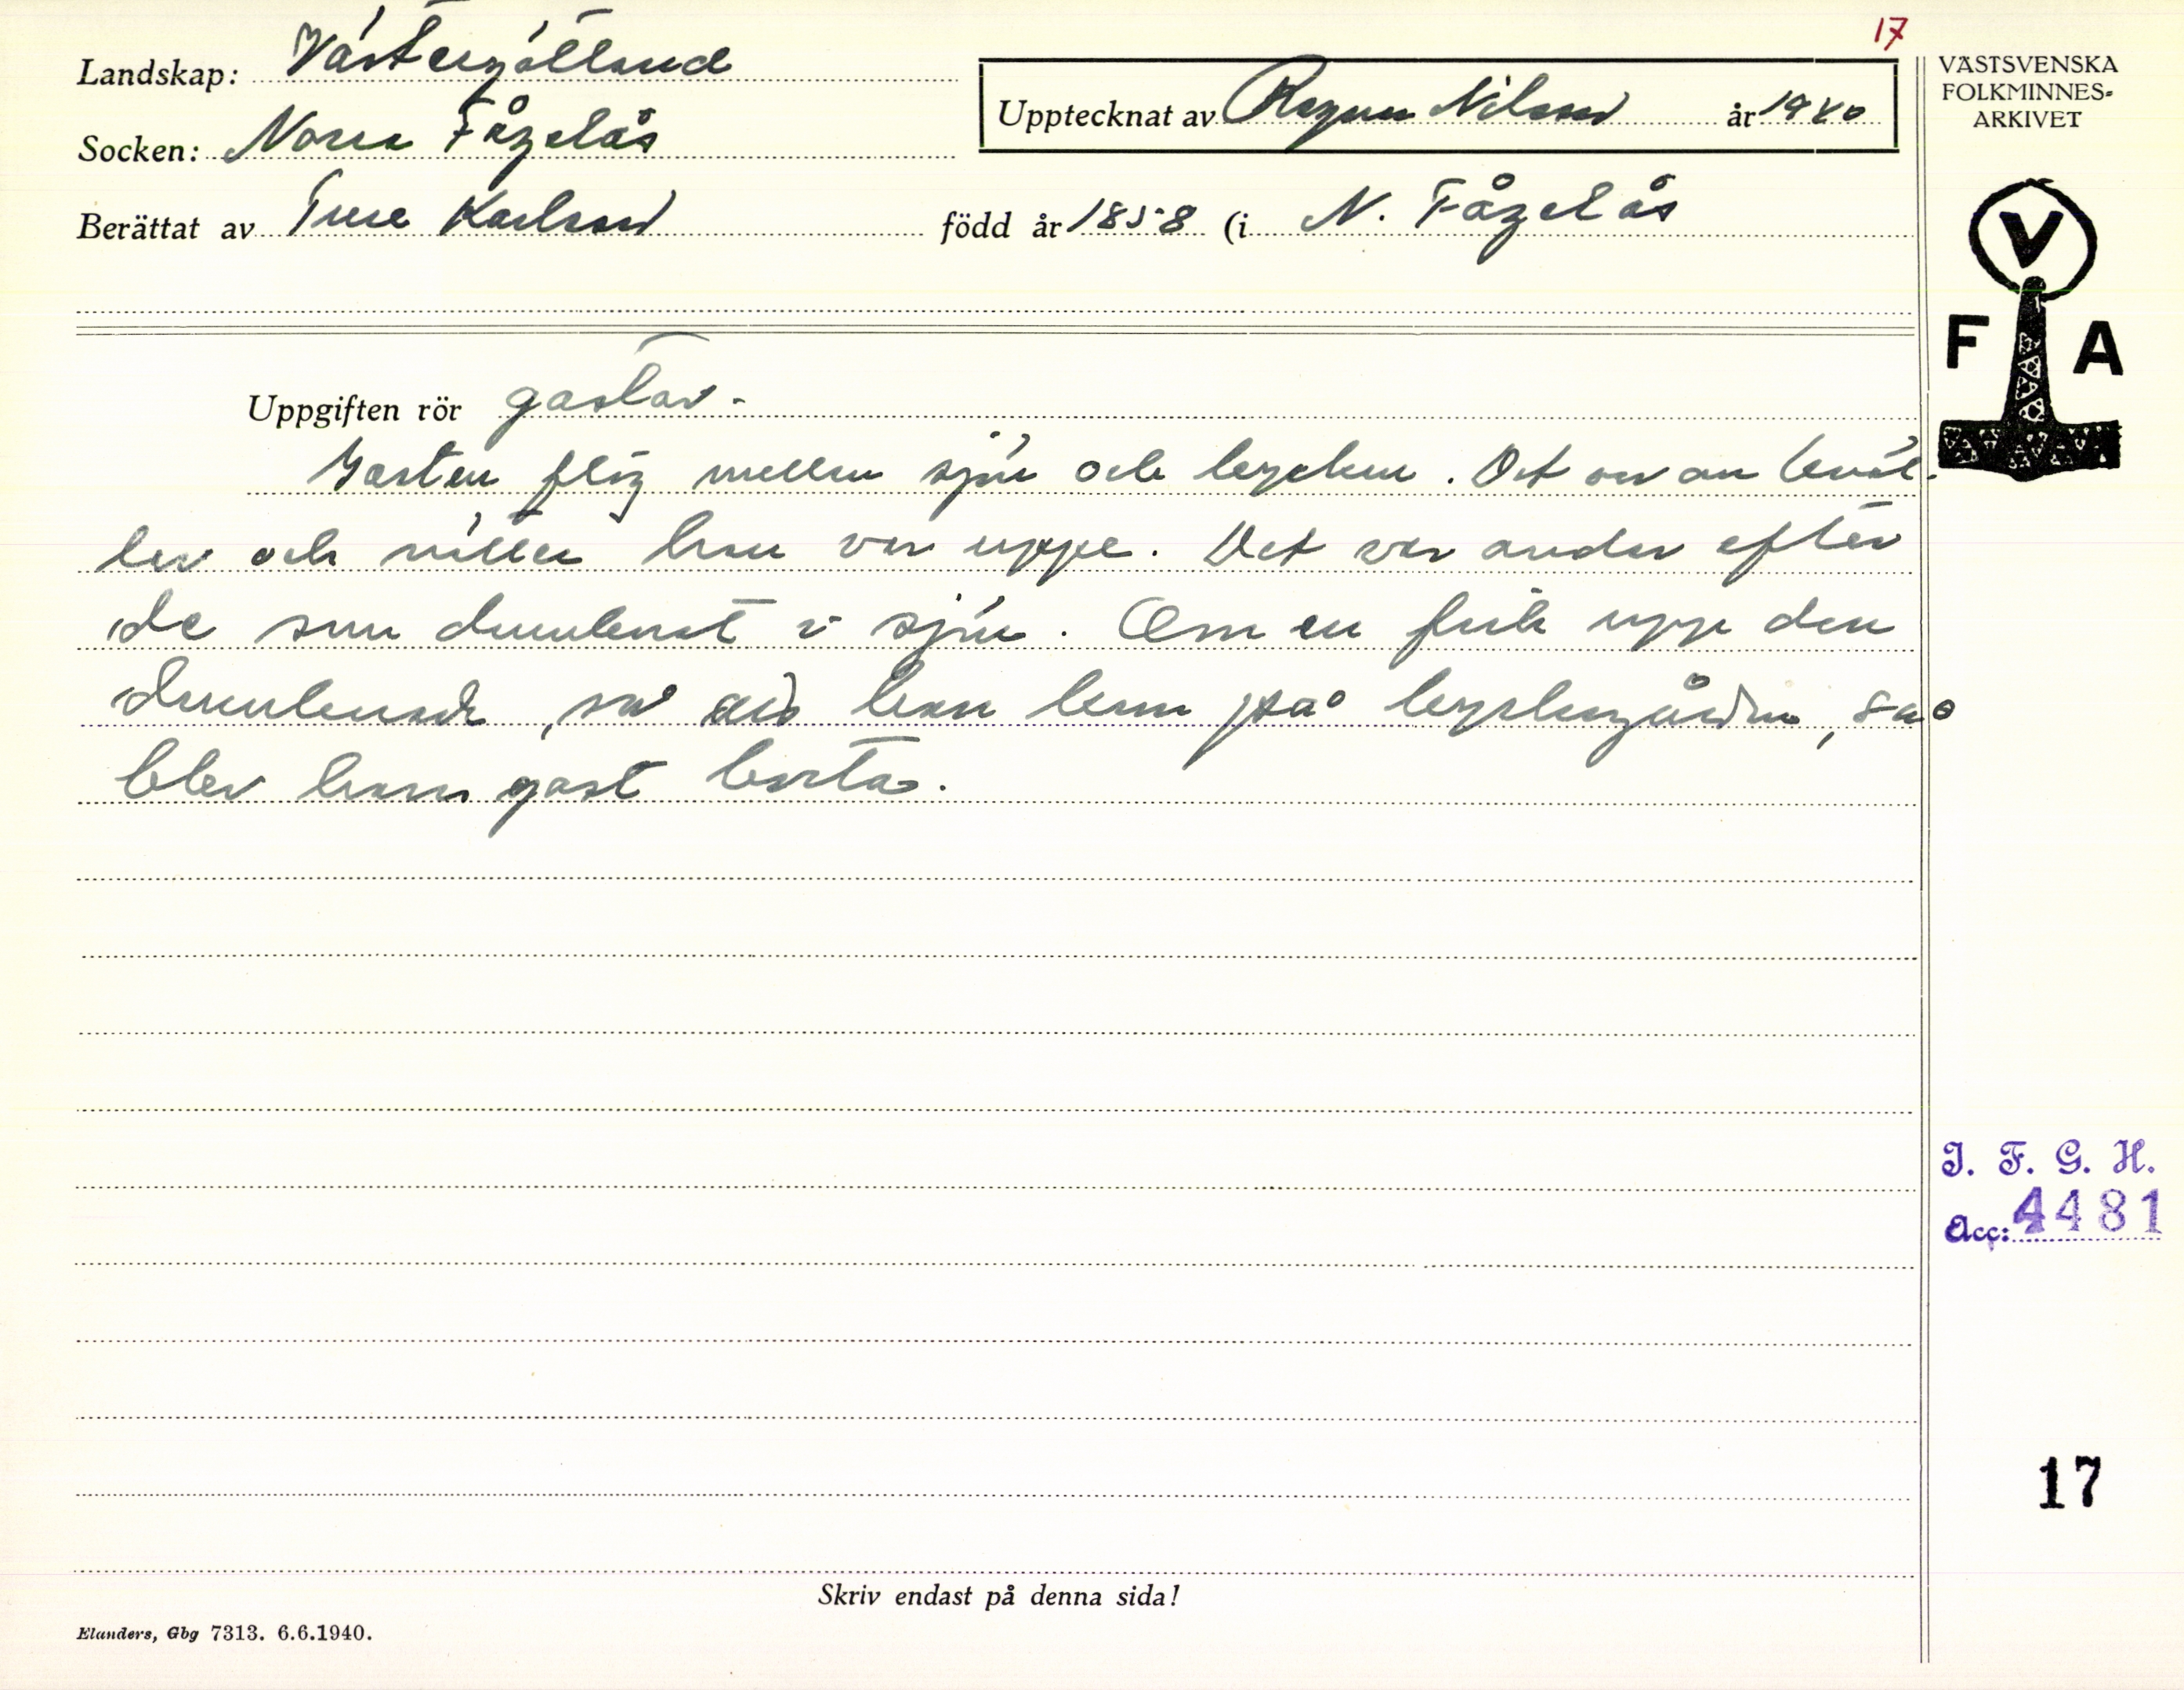 17
Landskap: Västergötland
Upptecknat av Ragnar Nilsson år 1940
VÄSTSVENSKA
FOLKMINNES-
ARKIVET
Socken: Norra Fågelås
Berättat av Ture Karlsson född år 1858 (i N. Fågelås
V
F A
Uppgiften rör gastar.
Gasten flög mellan sjön och kyrkan. Det var om kväl-
lar och nätter han var uppe. Det var anden efter
de som drunknat i sjön. Om en fick upp den
drunknade, så att han kom på kyrkogården, så
blev hans gast borta.
I. F. G. H.
Acc: 4481
17
Skriv endast på denna sida!
Elanders, Gbg 7313. 6.6.1940.